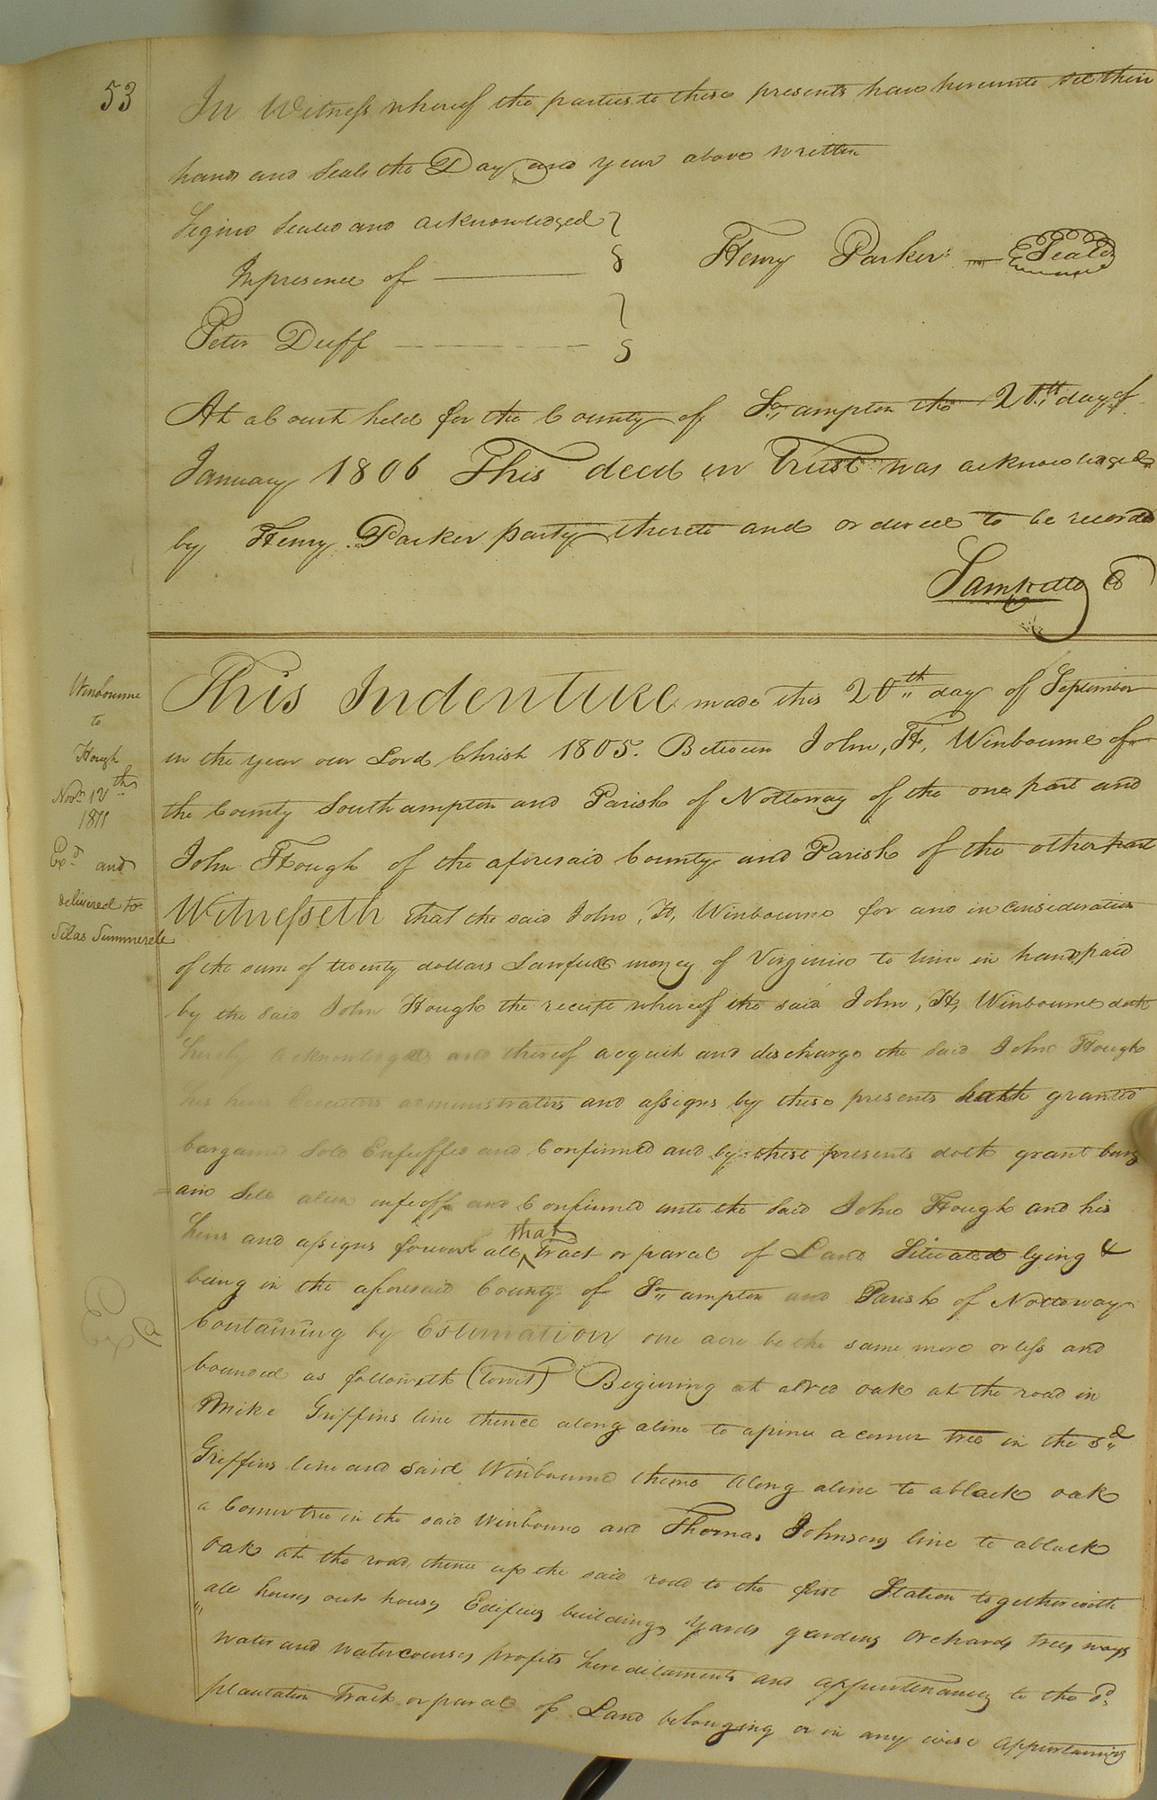 53
In Witness whereof the parties to these presents have hereunto set their
hands and Seals the Day and year above written
Signed Sealed and acknowledged
In presence of
Henry Parker Seal
Peter Duff
At a Court held for the County of So,, ampton the 20th day of
January 1806 This deed in Trust was acknowledged
by Henry Parker party thereto and ordered to be recorded
Sam Kello C
Winbourne
to
Hough
Novr 12th
1811
Exd and
delivered to
Silas Summerell
This Indenture made this 20th day of September
in the year our Lord Christ 1805. Between John, H, Winbourne of
the County Southampton and Parish of Nottoway of the one part and
John Hough of the aforesaid County and Parish of the other part
Witnesseth that the said John, H, Winbourne for and in Consideration
of the sum of twenty dollars Lawfull money of Virginia to him in hand paid
by the said John Hough the receipt whereof the said John, H, Winbourne doth
hereby acknowledge and thereof acquit and discharge the said John Hough
his heirs Executors administrators and assigns by these presents hath granted
bargained Sold Enfeffed and Confirmed and by these presents doth grant barg
ain Sell alien enfeoff and Confirmed unto the Said John Hough and his
heirs and assigns forever all that Tract or parcel of Land Situated lying &
being in the aforesaid County of So,, ampton and Parish of Nottoway
Containing by Estimation one acre be the same more or less and
bounded as followeth (towit) Begining at a Red oak at the road in
Mike Griffins line thence along a line to a pine a corner tree in the sd
Griffins line and said Winbourne thence along a line to a black oak
a Corner tree in the said Winbourne and Thomas Johnsons line to a black
Oak at the road, thence up the said road to the first Station together with
all houses out houses Edifices buildings yards gardens orchards trees ways
water and watercourses profits hereditaments and appurtenances to the Sd
plantation Track or parcel of Land belonging or in any wise appertaining